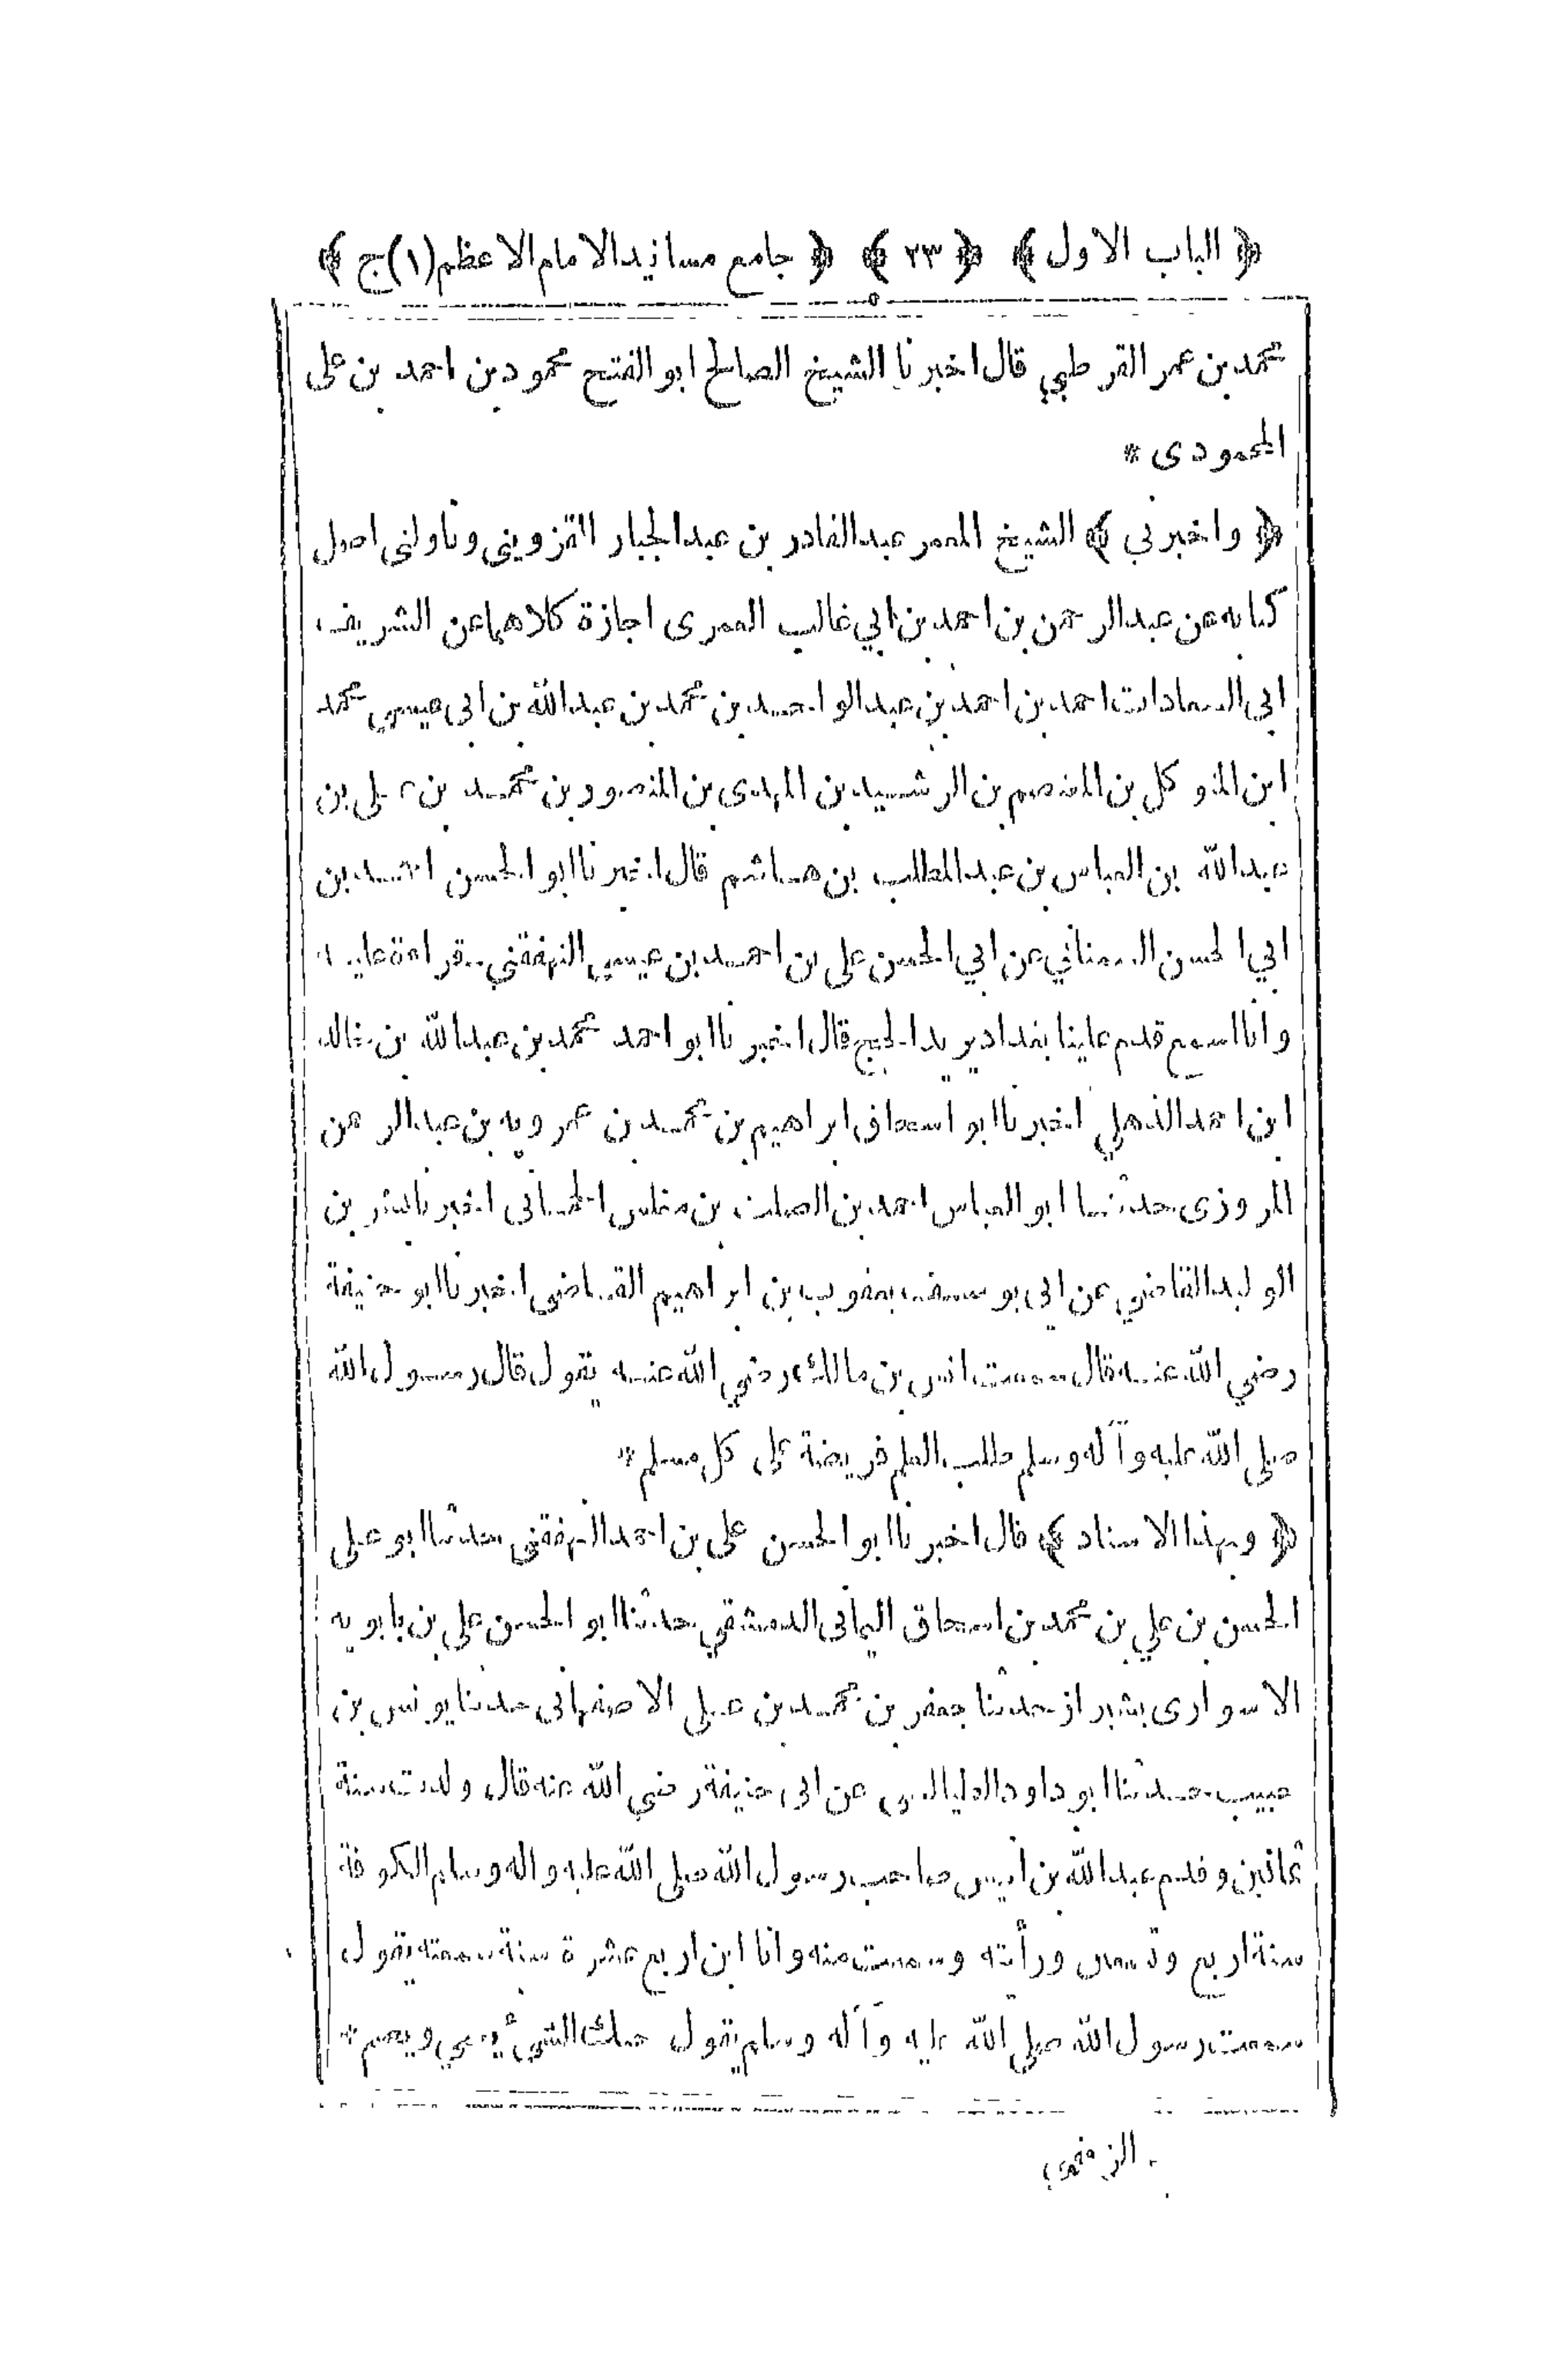 ﴿ الباب الاول ﴾ ﴿ ٢٣ ﴾ ﴿ جامع مسانيد الامام الاعظم (١) ج ﴾
محمد بن عمر القرطبي قال اخبرنا الشيخ الصالح ابو الفتح محمود بن احمد بن على
المحمودى *
﴿ واخبرني ﴾ الشيخ المعمر عبد القادر بن عبد الجبار القزويني وناولني اصل
كتابه عن عبد الرحمن بن احمد بن ابي غالب العمرى اجازة كلاهما عن الشريف
ابي السعادات احمد بن احمد بن عبد الواحد بن محمد بن عبد الله بن ابى عيسى محمد
ابن المتوكل بن المعتصم بن الرشيد بن المهدى بن المنصور بن محمد بن على بن
عبد الله بن العباس بن عبد المطلب بن هاشم قال اخبرنا ابو الحسن احمد بن
ابي الحسن السمناني عن ابي الحسن على بن احمد بن عيسى النهفقني قراءة عليه
وانا اسمع قدم علينا بغداد يريد الحج قال اخبرنا ابو احمد محمد بن عبد الله بن خالد
ابن احمد الذهلي اخبرنا ابو اسحاق ابراهيم بن محمد بن عمرويه بن عبد الرحمن
المروزى حدثنا ابو العباس احمد بن الصلت بن مغلس الحمانى اخبرنا بشر بن
الوليد القاضي عن ابى يوسف يعقوب بن ابراهيم القاضي اخبرنا ابو حنيفة
رضي الله عنه قال سمعت انس بن مالك رضي الله عنه يقول قال رسول الله
صلى الله عليه وآله وسلم طلب العلم فريضة على كل مسلم *
﴿ وبهذا الاسناد ﴾ قال اخبرنا ابو الحسن على بن احمد النهفقني حدثنا ابو على
الحسن بن علي بن محمد بن اسحاق اليمانى الدمشقي حدثنا ابو الحسن علي بن بابويه
الاسوارى بشيراز حدثنا جعفر بن محمد بن على الاصفهانى حدثنا يونس بن
حبيب حدثنا ابو داود الطيالسى عن ابى حنيفة رضي الله عنه قال ولدت سنة
ثمانين وقدم عبد الله بن انيس صاحب رسول الله صلى الله عليه واله وسلم الكوفة
سنة اربع وتسعين ورأيته وسمعت منه وانا ابن اربع عشرة سنة سمعته يقول
سمعت رسول الله صلى الله عليه وآله وسلم يقول حبك الشيء يعمي ويصم *